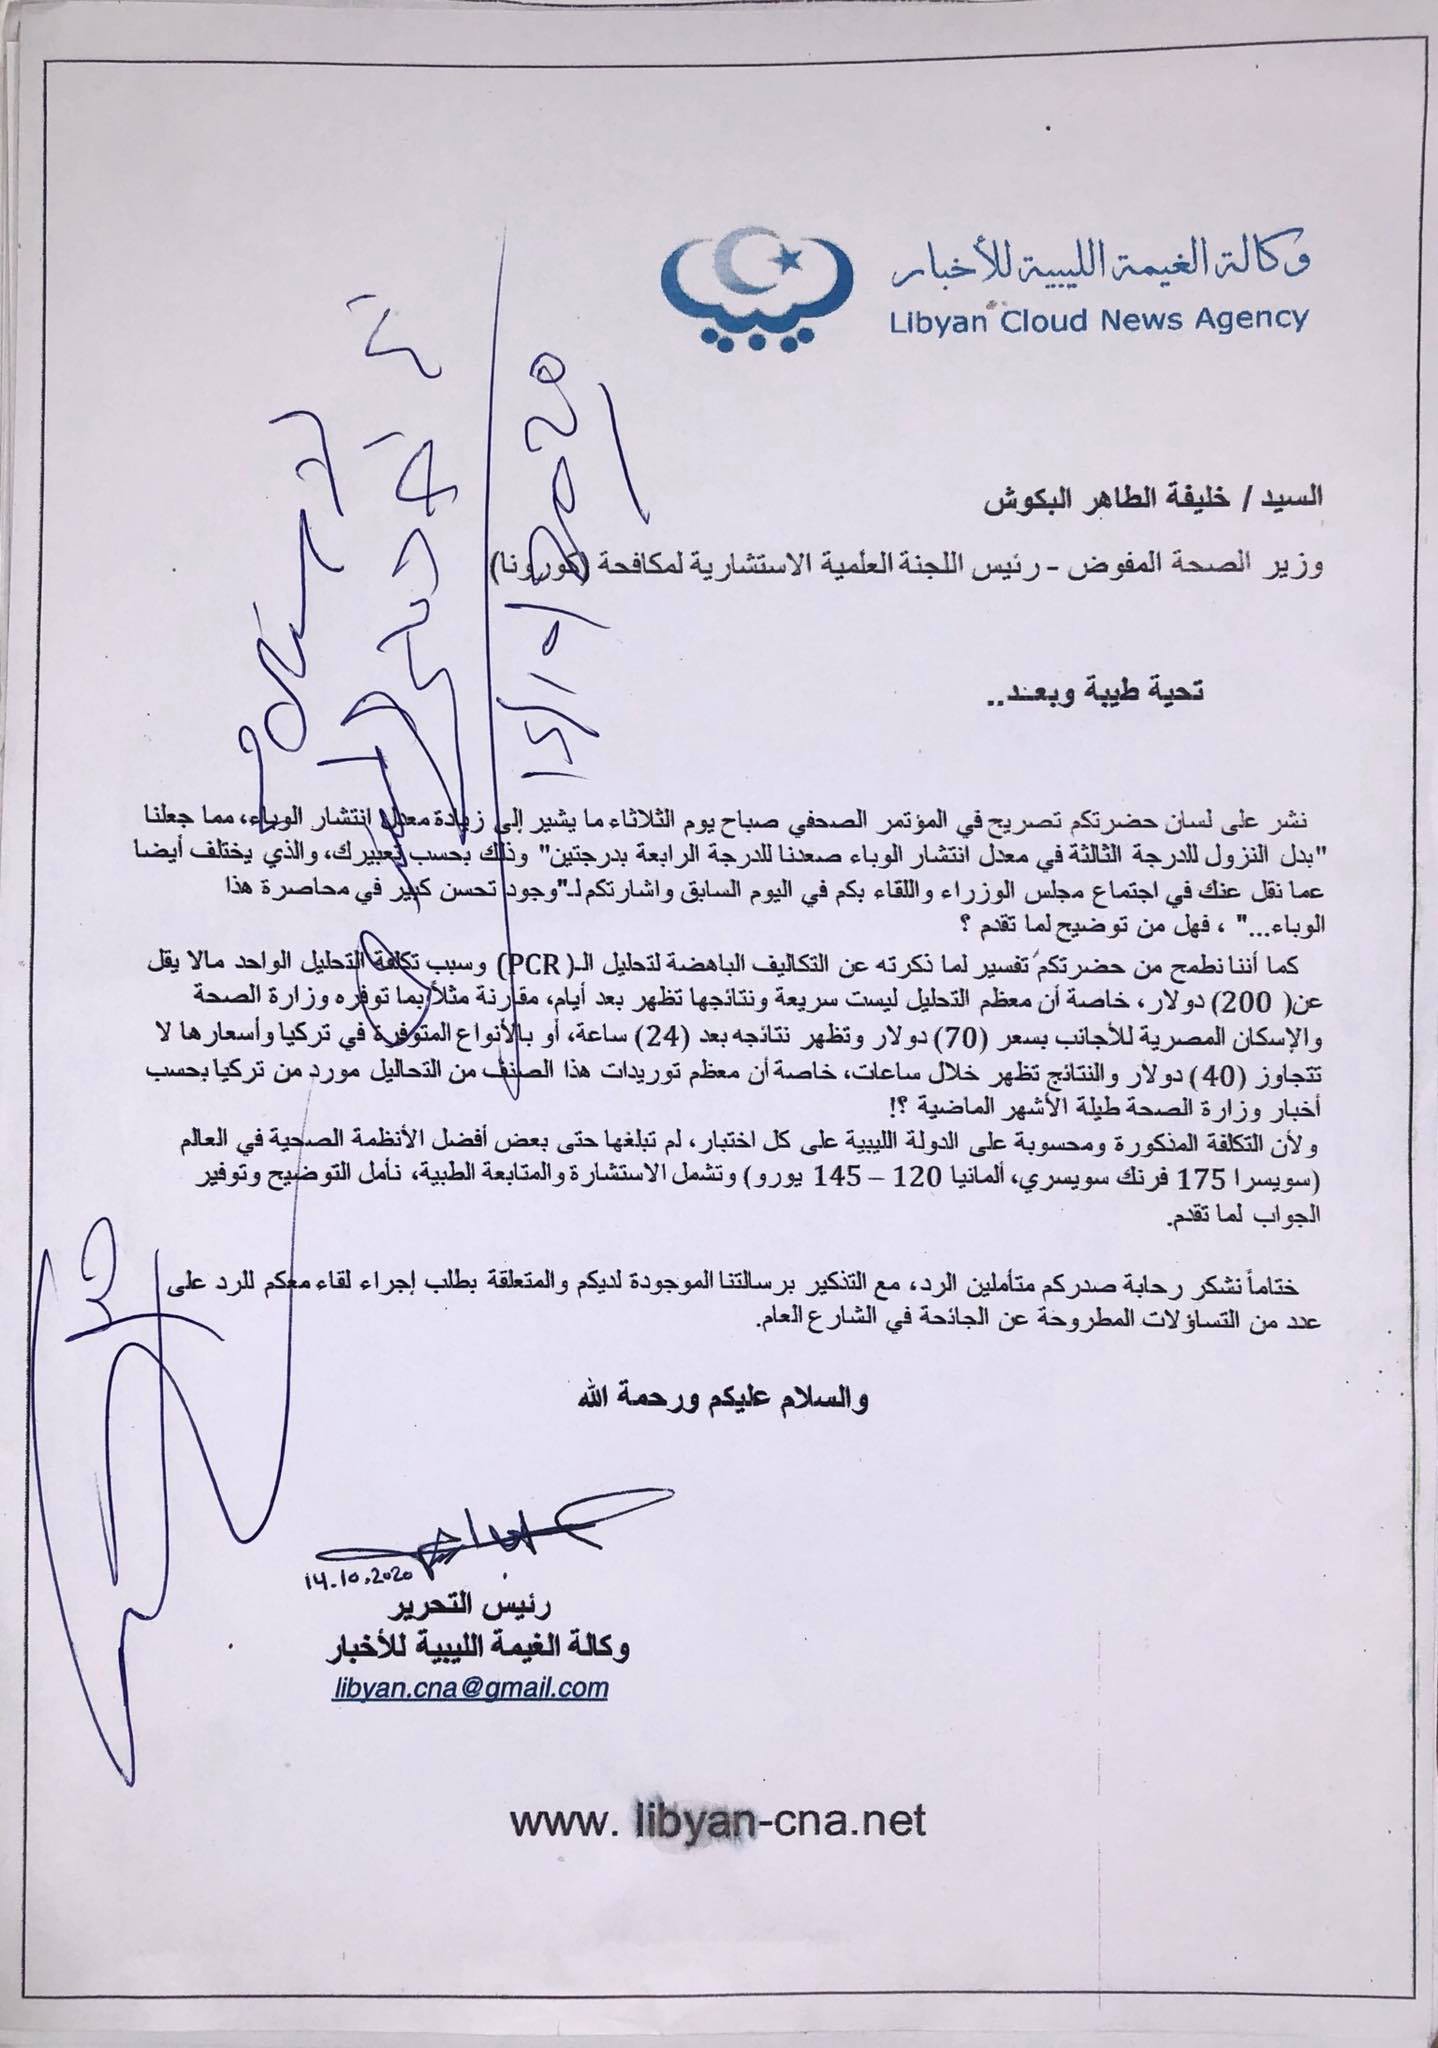 وكالة الغيمة الليبية للأخبار
Libyan Cloud News Agency
السيد / خليفة الطاهر البكوش
وزير الصحة المفوض - رئيس اللجنة العلمية الاستشارية لمكافحة (كورونا)
تحية طيبة وبعـد..
نشر على لسان حضرتكم تصريح في المؤتمر الصحفي صباح يوم الثلاثاء ما يشير إلى زيادة معدل انتشار الوباء، مما جعلنا
"بدل النزول للدرجة الثالثة في معدل انتشار الوباء صعدنا للدرجة الرابعة بدرجتين" وذلك بحسب تعبيرك، والذي يختلف أيضا
عما نقل عنك في اجتماع مجلس الوزراء واللقاء بكم في اليوم السابق واشارتكم لـ"وجود تحسن كبير في محاصرة هذا
الوباء..." ، فهل من توضيح لما تقدم ؟
كما أننا نطمح من حضرتكم تفسير لما ذكرته عن التكاليف الباهضة لتحليل الـ(PCR) وسبب تكلفة التحليل الواحد مالا يقل
عن( 200) دولار، خاصة أن معظم التحليل ليست سريعة ونتائجها تظهر بعد أيام، مقارنة مثلاً بما توفره وزارة الصحة
والإسكان المصرية للأجانب بسعر (70) دولار وتظهر نتائجه بعد (24) ساعة، أو بالأنواع المتوفرة في تركيا وأسعارها لا
تتجاوز (40) دولار والنتائج تظهر خلال ساعات، خاصة أن معظم توريدات هذا الصنف من التحاليل مورد من تركيا بحسب
أخبار وزارة الصحة طيلة الأشهر الماضية ؟!
ولأن التكلفة المذكورة ومحسوبة على الدولة الليبية على كل اختبار، لم تبلغها حتى بعض أفضل الأنظمة الصحية في العالم
(سويسرا 175 فرنك سويسري، ألمانيا 120 – 145 يورو) وتشمل الاستشارة والمتابعة الطبية، نأمل التوضيح وتوفير
الجواب لما تقدم.
ختاماً نشكر رحابة صدركم متأملين الرد، مع التذكير برسالتنا الموجودة لديكم والمتعلقة بطلب إجراء لقاء معكم للرد على
عدد من التساؤلات المطروحة عن الجائحة في الشارع العام.
والسلام عليكم ورحمة الله
14.10.2020
رئيس التحرير
وكالة الغيمة الليبية للأخبار
libyan.cna@gmail.com
www. libyan-cna.net